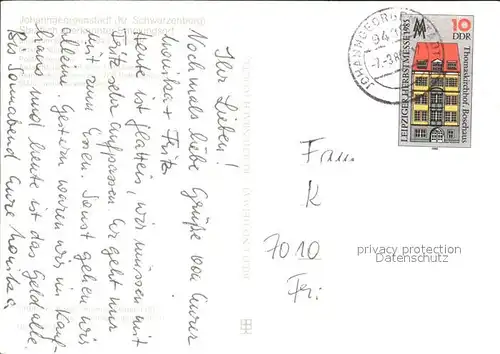 Johanngeorgenstadt (Kr. Schwarzenberg)
Ihr Lieben!
Nochmals liebe Grüße von Eurer
Monika + Fritz
Heute ist Glatteis, wir müssen mit
Fritz sehr aufpassen. Er geht nur
mit zum Essen. Sonst gehen wir
alleine. Gestern waren wir im Kauf-
haus und heute ist das Geld alle.
Bis Sonnabend Eure Monika.
JOHANNGEORGEN
941
-7.-3.8
10
DDR
LEIPZIGER HERBSTMESSE 1985
Thomaskirchhof / Bosehaus
Frau
K
7010
Fr.:
privacy protection
Datenschutz